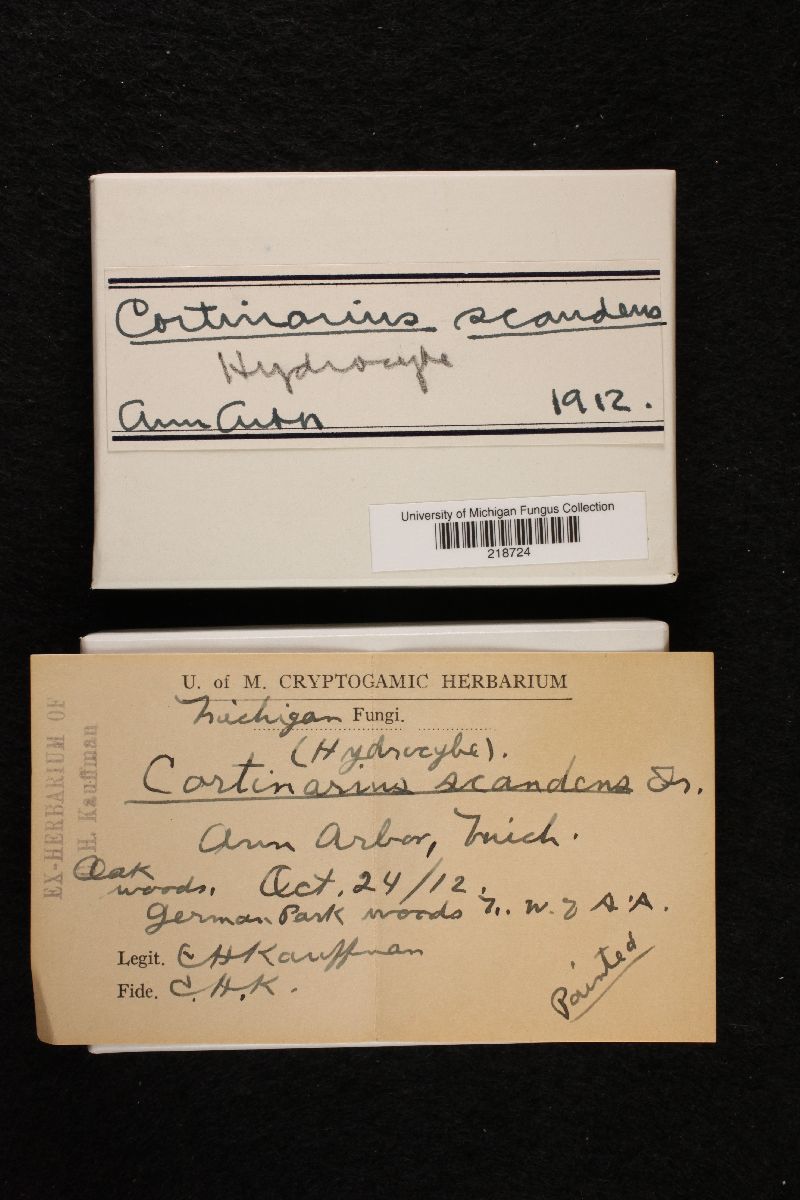 Cortinarius scandens
Hydrocybe
Ann Arbor 1912.
University of Michigan Fungus Collection
218724
U. of M. CRYPTOGAMIC HERBARIUM
Michigan Fungi.
(Hydrocybe).
Cortinarius scandens Fr.
Ann Arbor, Mich.
Oak
woods. Oct. 24/12.
German Park woods N. W. of A.A.
Legit. C H Kauffman
Fide. C.H.K.
Painted
EX-HERBARIUM OF
H. Kauffman